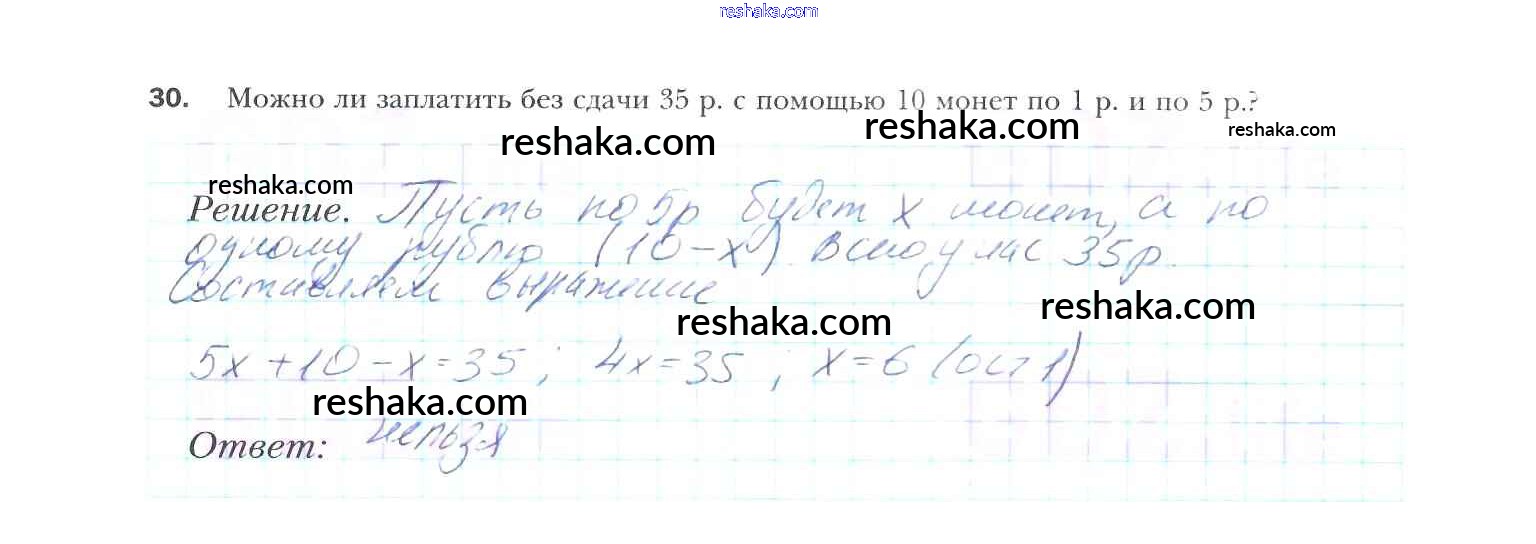 reshaka.com
30. Можно ли заплатить без сдачи 35 р. с помощью 10 монет по 1 р. и по 5 р.?
reshaka.com reshaka.com reshaka.com
reshaka.com
Решение. Пусть по 5р будет x монет, а по
одному рублю (10-x). Всего у нас 35р.
Составляем выражение
reshaka.com reshaka.com
5x+10-x=35; 4x=35; x=6 (ост 1)
reshaka.com
Ответ: нельзя